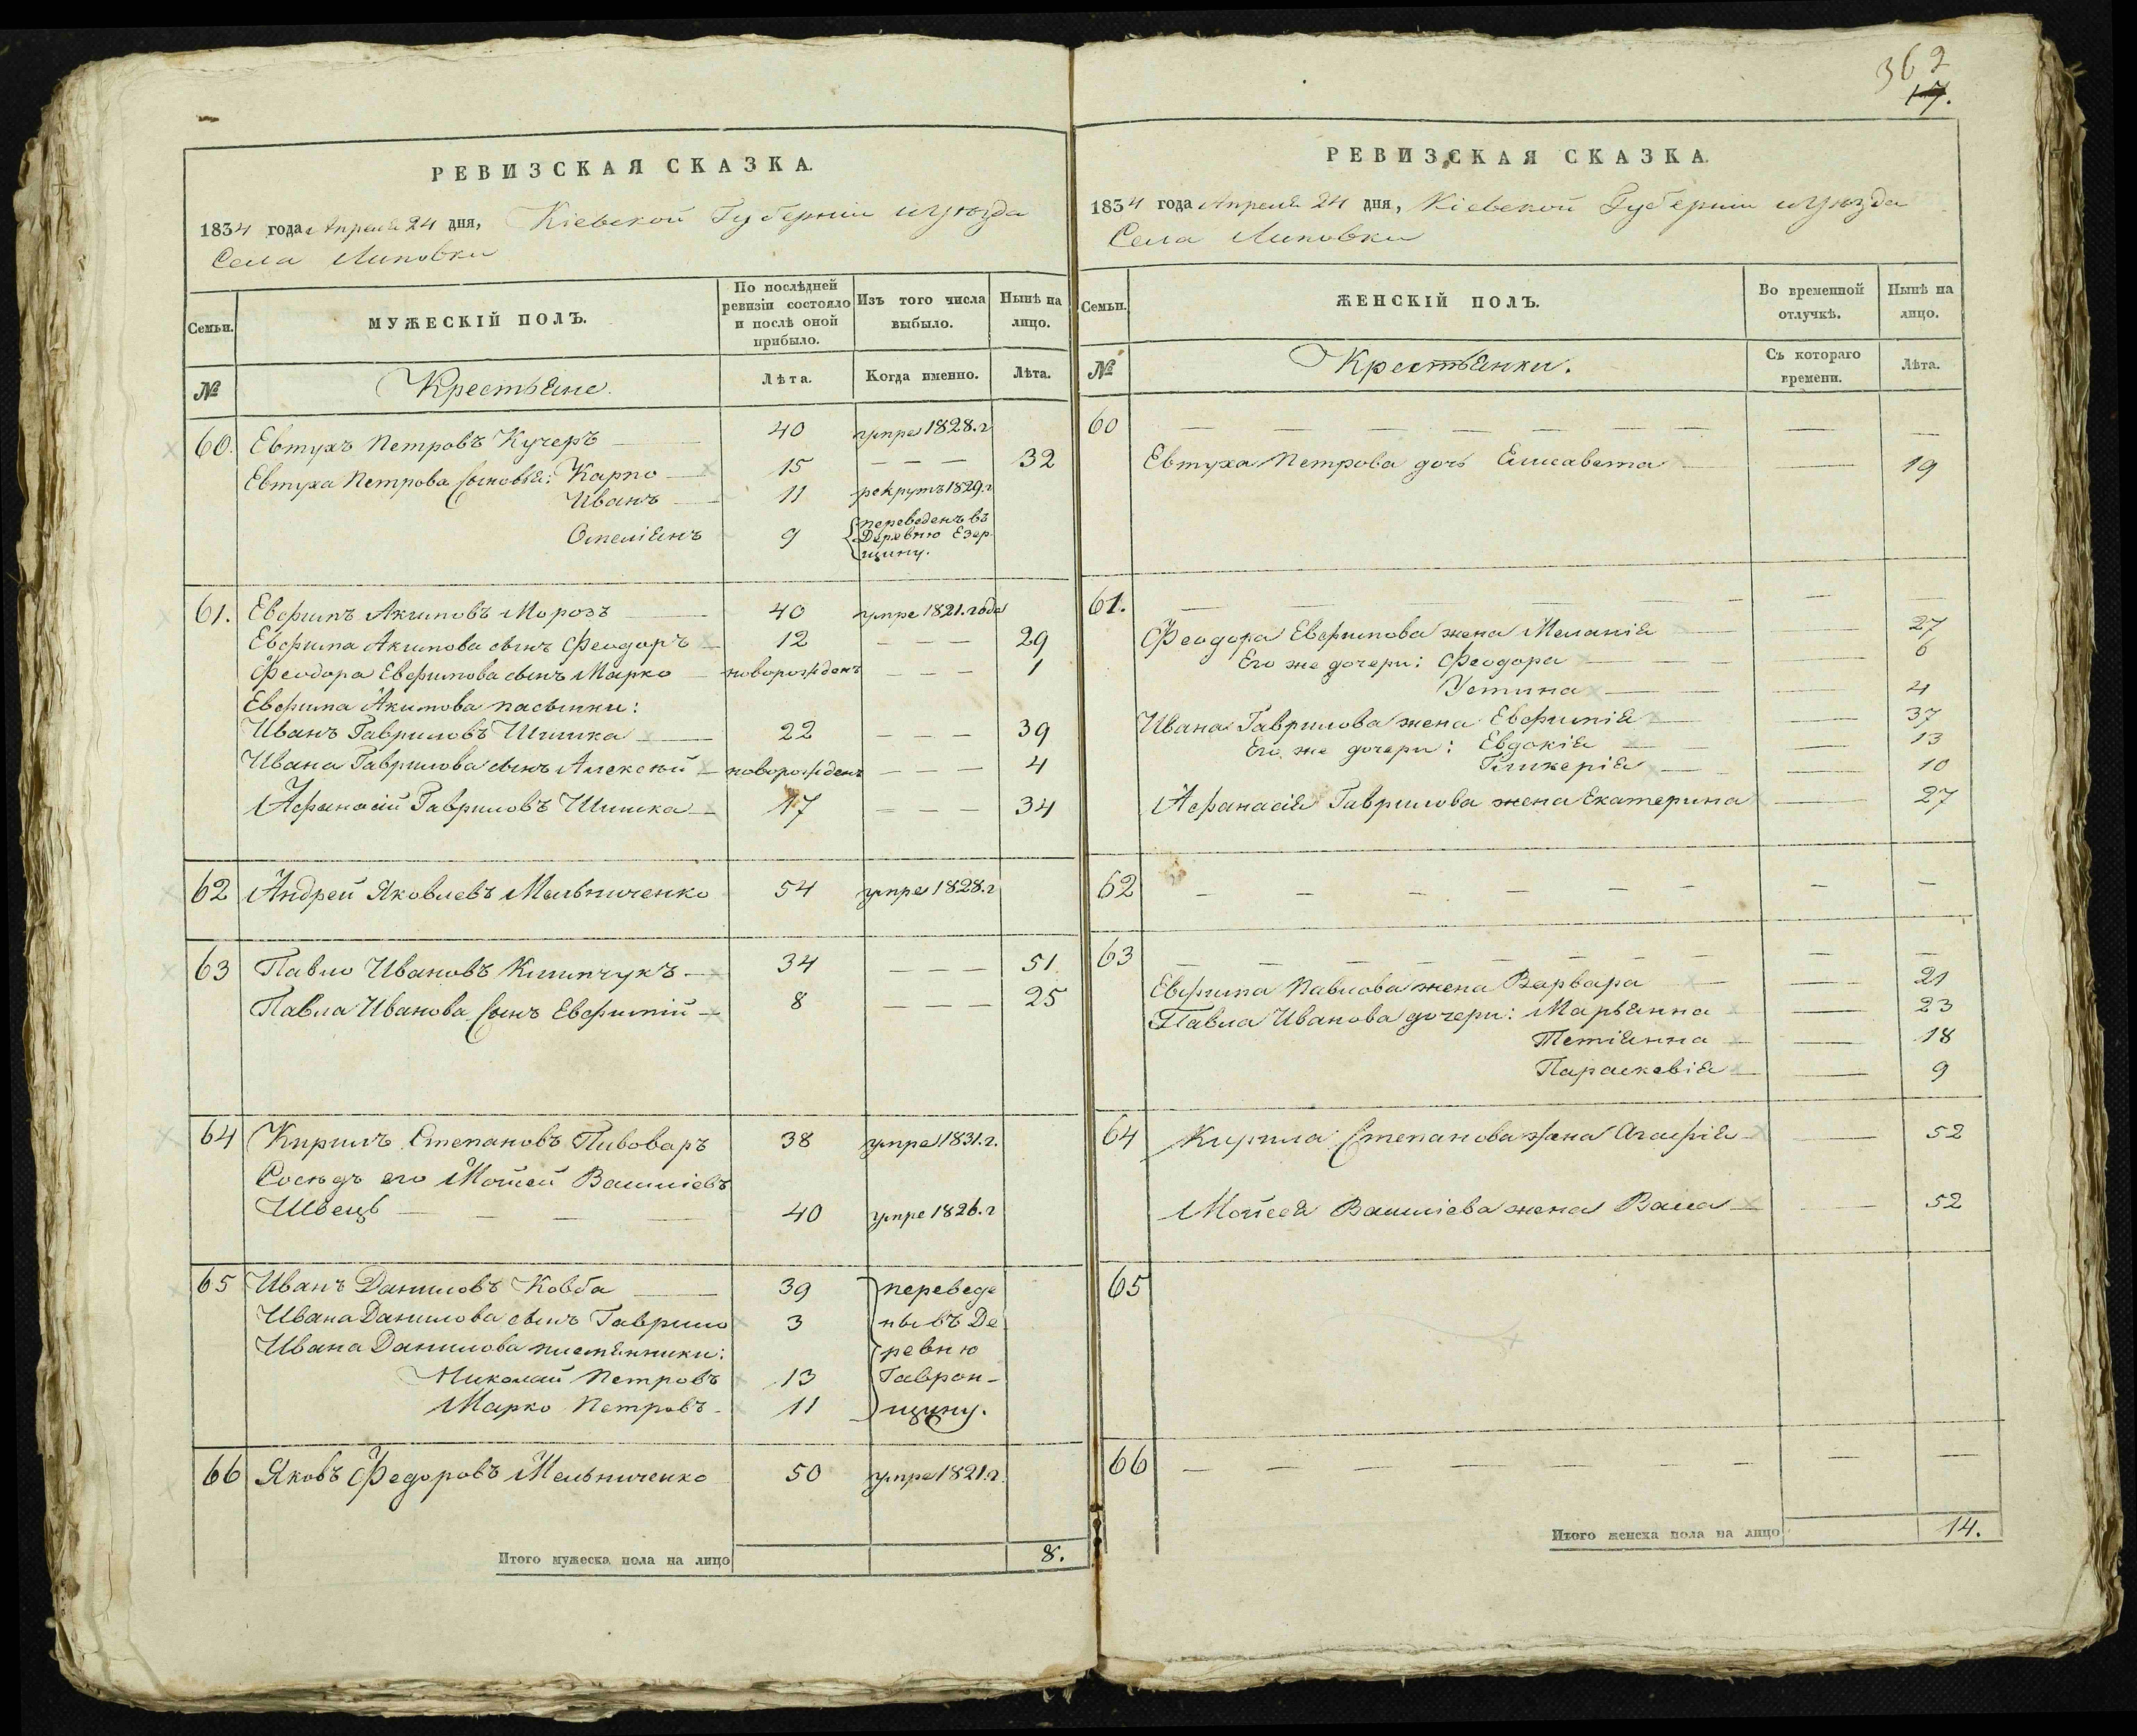 362
17.
РЕВИЗСКАЯ СКАЗКА.
1834 года Апреля 24 дня, Кіевской Губерніи и Уѣзда
Села Липовки
Семьи.
МУЖЕСКІЙ ПОЛЪ.
По послѣдней
ревизіи состояло
и послѣ оной
прибыло.
Изъ того числа
выбыло.
Нынѣ на
лицо.
№
Крестьяне.
Лѣта.
Когда именно.
Лѣта.
60. Евтухъ Петровъ Кучеръ 40 умре 1828. г
Евтуха Петрова Сыновья: Карпо 15 32
Иванъ 11 рекрутъ 1829. г
Омеліянъ 9 переведенъ въ
Деревню Езер
щину.
61. Евфимъ Акимовъ Морозъ 40 умре 1821. года
Евфима Акимова сынъ Феодоръ 12 29
Феодора Евфимова сынъ Марко новорожденъ 1
Евфима Акимова пасынки:
Иванъ Гавриловъ Шишка 22 39
Ивана Гаврилова сынъ Алексѣй новорожденъ 4
Афанасій Гавриловъ Шишка 17 34
62 Андрей Яковлевъ Мельниченко 54 умре 1828. г
63 Павло Ивановъ Климчукъ 34 51
Павла Иванова Сынъ Евфимій 8 25
64 Кирилъ Степановъ Пивоваръ 38 умре 1831. г.
Сосѣдъ его Мойсей Василіевъ
Швець 40 умре 1826. г
65 Иванъ Даниловъ Ковба 39 переведе
Ивана Данилова сынъ Гаврило 3 ны въ Де
Ивана Данилова племянники: ревню
Николай Петровъ 13 Гаврон-
Марко Петровъ 11 щину.
66 Яковъ Федоровъ Мельниченко 50 умре 1821. г.
Итого мужеска пола на лицо 8.
РЕВИЗСКАЯ СКАЗКА.
1834 года Апреля 24 дня, Кіевской Губерніи и Уѣзда
Села Липовки
Семьи.
ЖЕНСКІЙ ПОЛЪ.
Во временной
отлучкѣ.
Нынѣ на
лицо.
№
Крестьянки.
Съ котораго
времени.
Лѣта.
60
Евтуха Петрова дочь Елисавета 19
61.
Феодора Евфимова жена Меланія 27
Его же дочери: Феодора 6
Устина 4
Ивана Гаврилова жена Евфимія 37
Его же дочери: Евдокія 13
Гликерія 10
Афанасія Гаврилова жена Екатерина 27
62
63
Евфима Павлова жена Варвара 21
Павла Иванова дочери: Марьянна 23
Тетіянна 18
Параскевія 9
64 Кирила Степанова жена Агафія 52
Мойсея Василіева жена Васса 52
65
66
Итого женска пола на лицо 14.